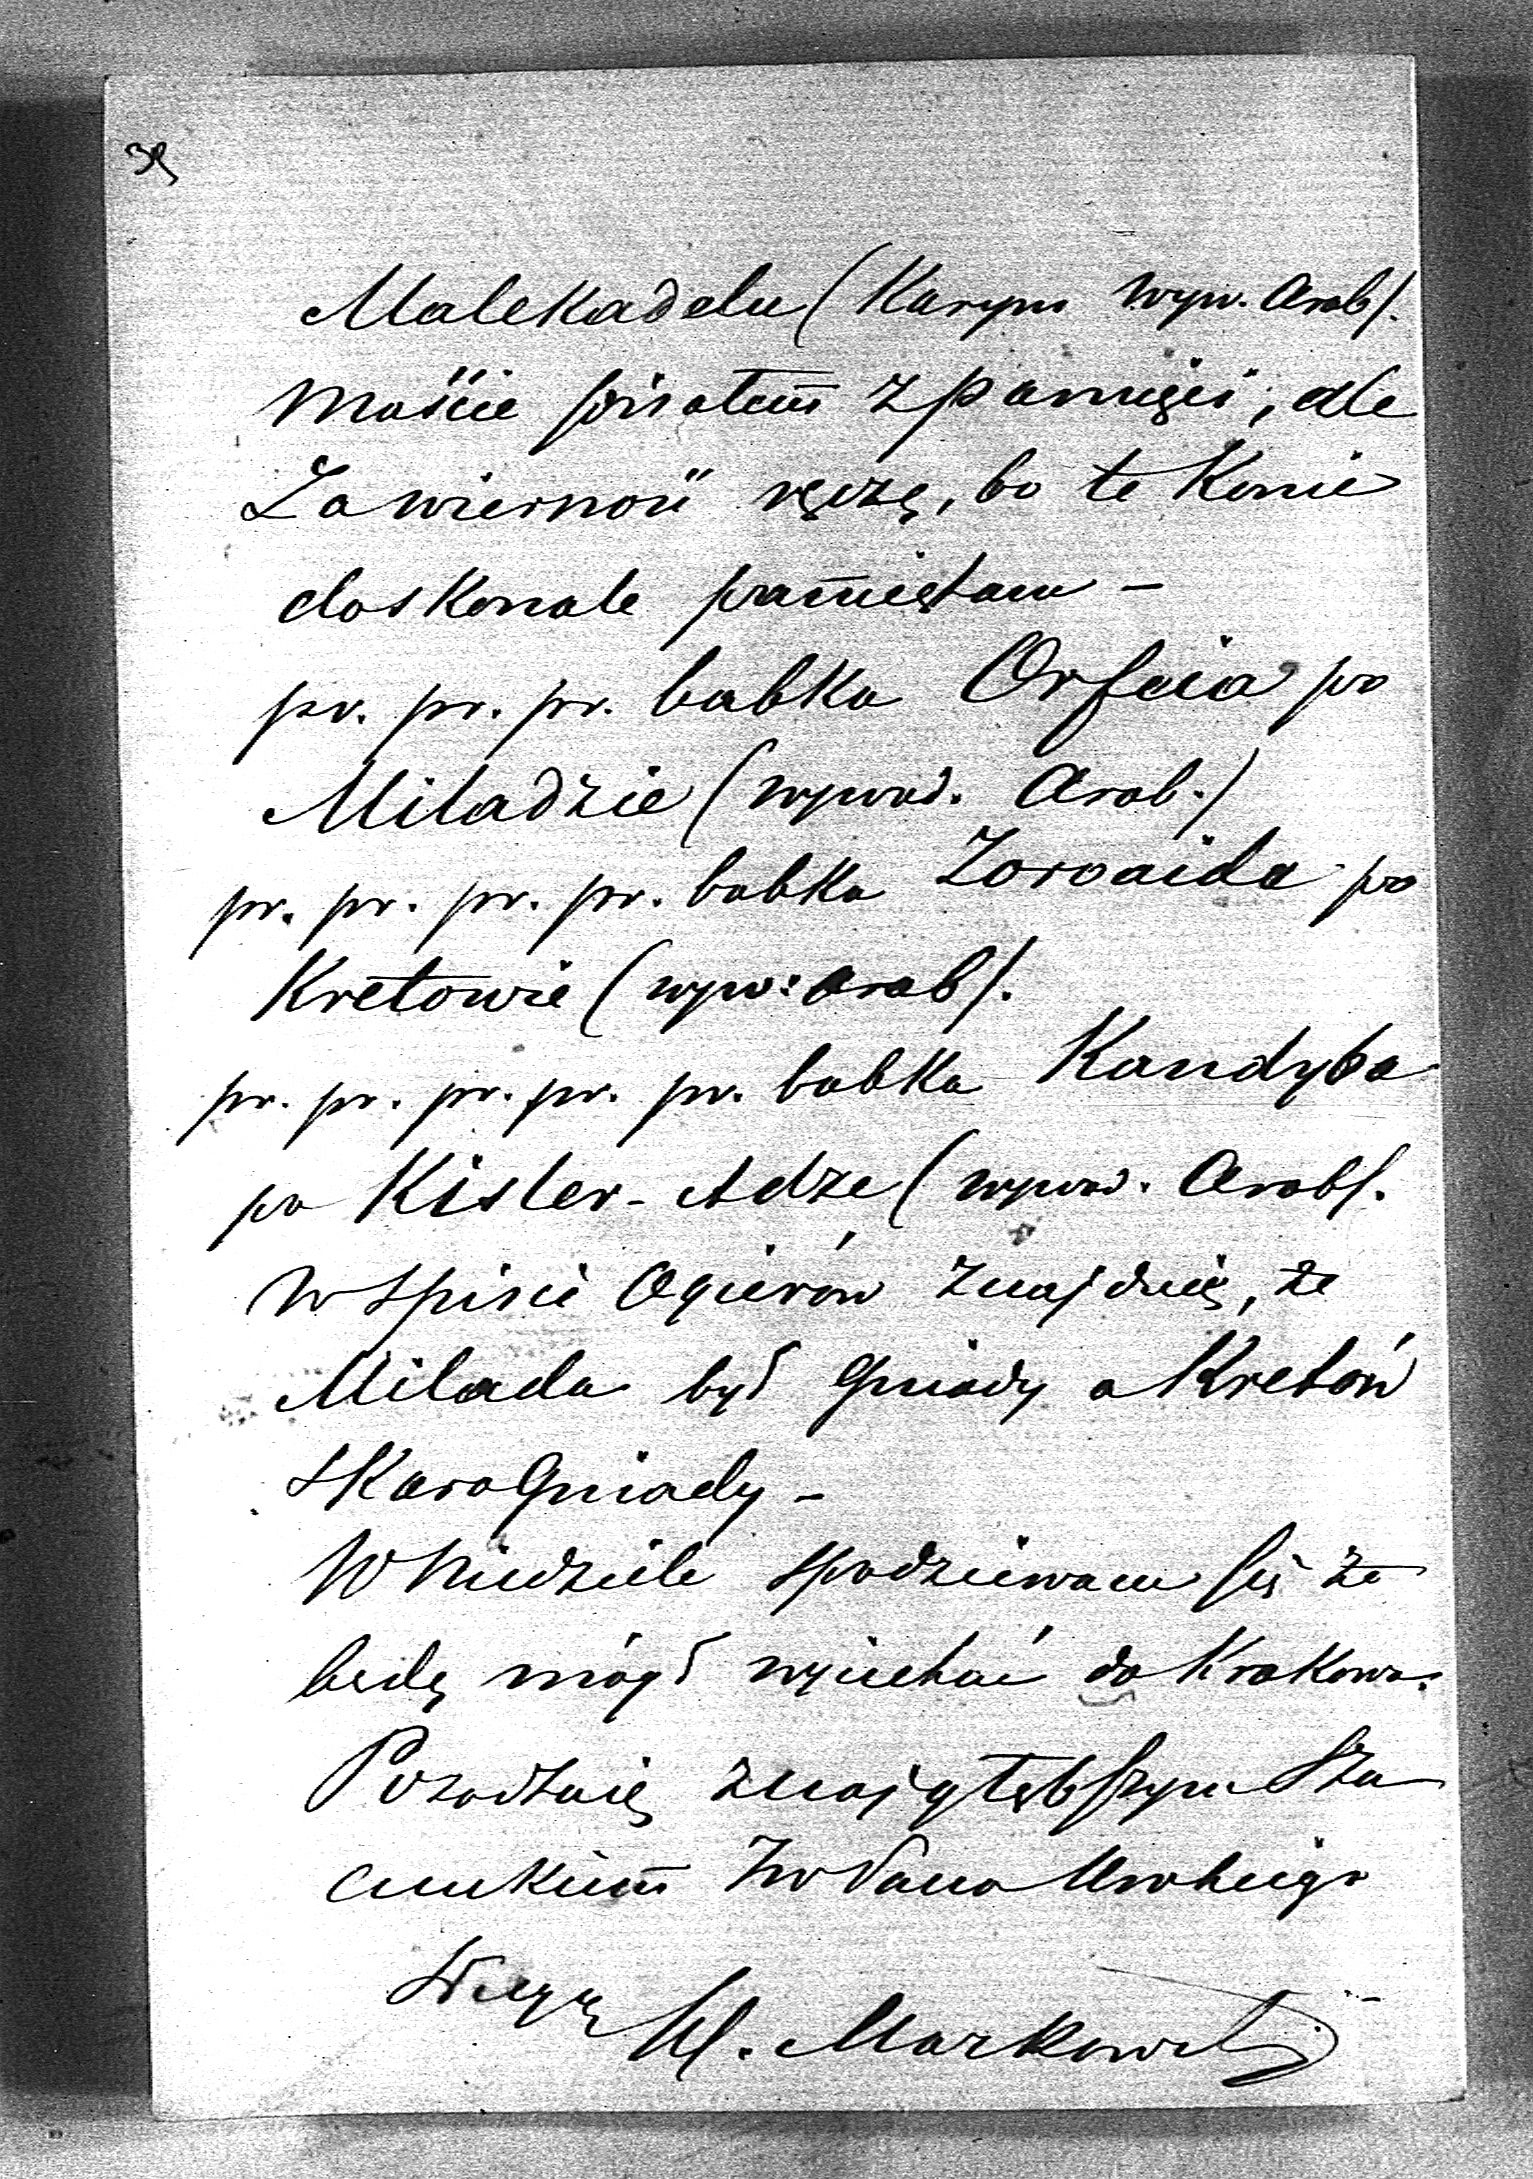 39
Malekadelu (Karym wyw. Arab).
Maście pisałem z pamięci, ale
Za wierność ręczę, bo te Konie
doskonale pamiętam –
pr. pr. pr. babka Orfeia po
Miladzie (wywod. Arab.)
pr. pr. pr. pr. babka Zoroaida po
Kretowie (wyw: arab).
pr. pr. pr. pr. pr. babka Kandyba
po Kisler-Adze (wywod. Arab).
W spisie Ogierów znajduię, że
Milada był Gniady a Kretów
SkaroGniady –
W Niedziele spodziewam się że
będę mógł wyiechać do Krakowa.
Pozostaię z najgłębszym Sza
cunkiem JW Pana Urobnego
Sługą
M. Markowski